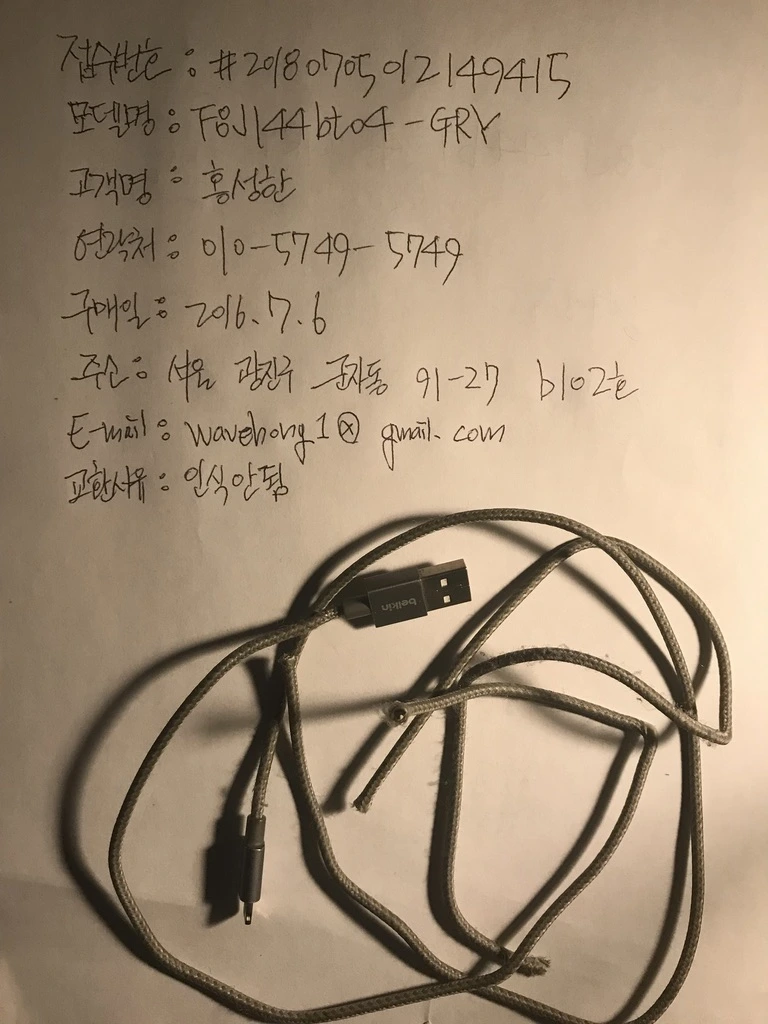 접수번호 : #20180705012149415
모델명 : F8J144bt04-GRY
고객명 : 홍성한
연락처 : 010-5749-5749
구매일 : 2016.7.6
주소 : 서울 광진구 군자동 91-27 b102호
E-mail : wavehong1@gmail.com
교환사유 : 인식안됨
belkin